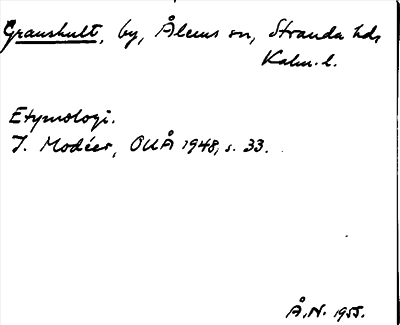 Granshult, by, Ålems sn, Stranda hds
Kalm. l.
Etymologi.
I. Modéer, OUÅ 1948, s. 33.
Å.N. 1955.